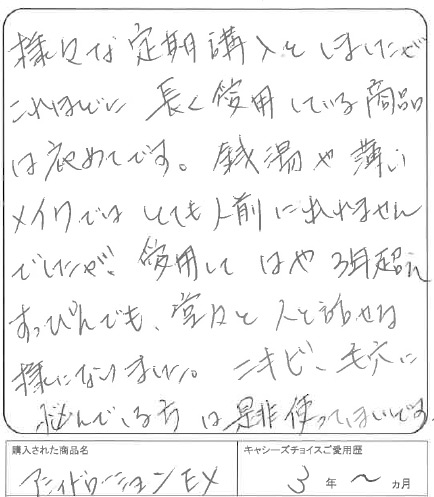 様々な定期購入をしましたが
これほどに長く使用している商品
は初めてです。銭湯や薄い
メイクではとても人前に出れません
でしたが、使用してはや3年超え
すっぴんでも、堂々と人と話せる
様になりました。ニキビ、毛穴に
悩んでいる方は是非使ってほしいです。
購入された商品名
キャシーズチョイスご愛用歴
EX
3年〜ヵ月